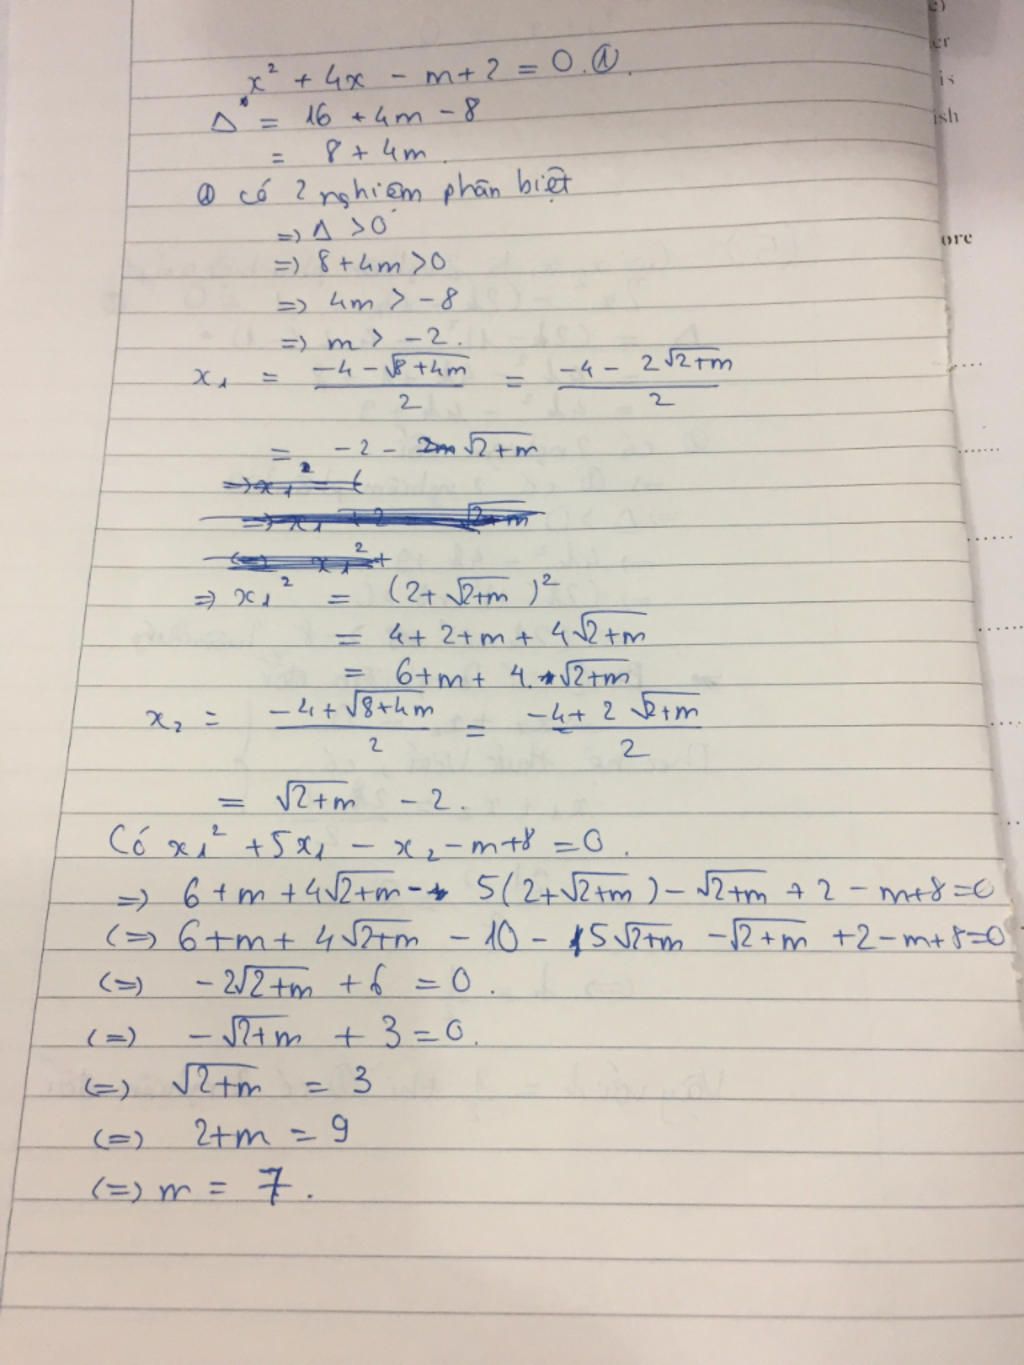 x² + 4x - m + 2 = 0. ①.
Δ = 16 + 4m - 8
= 8 + 4m.
① có 2 nghiệm phân biệt
=> Δ > 0
=> 8 + 4m > 0
=> 4m > -8
=> m > -2.
x₁ = (-4 - √(8+4m))/2 = (-4 - 2√(2+m))/2
= -2 - √(2+m)
=> x₁² = (2 + √(2+m))²
= 4 + 2 + m + 4√(2+m)
= 6 + m + 4.√(2+m)
x₂ = (-4 + √(8+4m))/2 = (-4 + 2√(2+m))/2
= √(2+m) - 2.
Có x₁² + 5x₁ - x₂ - m + 8 = 0.
=> 6 + m + 4√(2+m) - 5(2 + √(2+m)) - √(2+m) + 2 - m + 8 = 0
(=) 6 + m + 4√(2+m) - 10 - 5√(2+m) - √(2+m) + 2 - m + 8 = 0
(=) -2√(2+m) + 6 = 0.
(=) -√(2+m) + 3 = 0.
(=) √(2+m) = 3
(=) 2 + m = 9
(=) m = 7.
er
is
ish
ore